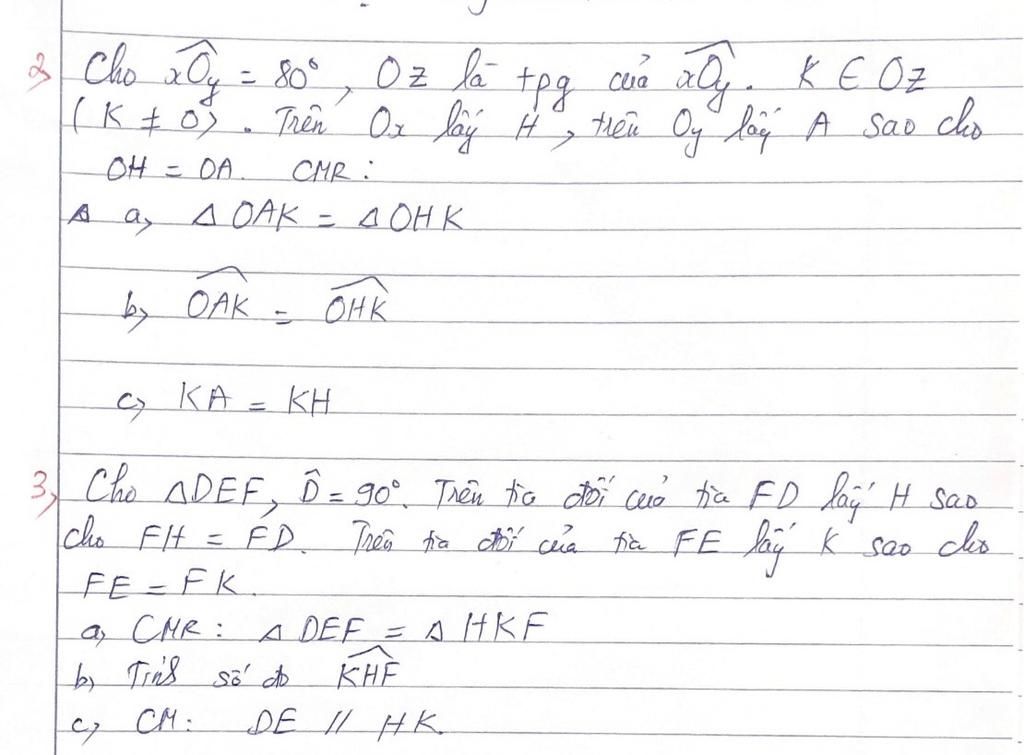 2, Cho xOy = 80°, Oz là tpg của xOy. K ∈ Oz
(K ≠ O). Trên Ox lấy H, trên Oy lấy A sao cho
OH = OA. CMR:
a, Δ OAK = Δ OHK
b, OAK = OHK
c, KA = KH
3, Cho ΔDEF, D̂ = 90°. Trên tia đối của tia FD lấy H sao
cho FH = FD. Trên tia đối của tia FE lấy K sao cho
FE = FK.
a, CMR: Δ DEF = Δ HKF
b, Tính số đo KHF
c, CM: DE // HK.